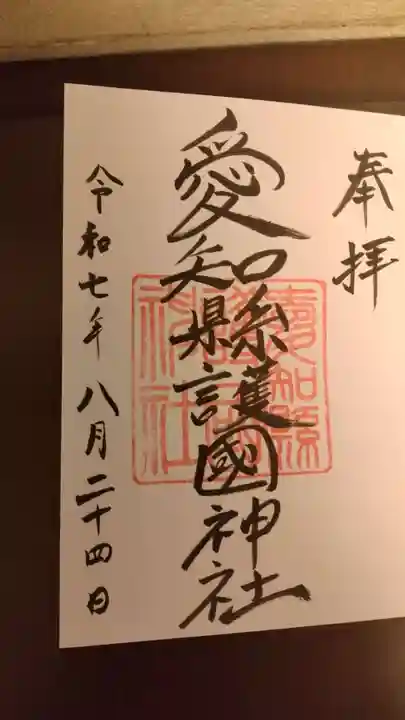 奉拝
愛知縣護國神社
令和七年八月二十四日
愛知縣
護國
神社